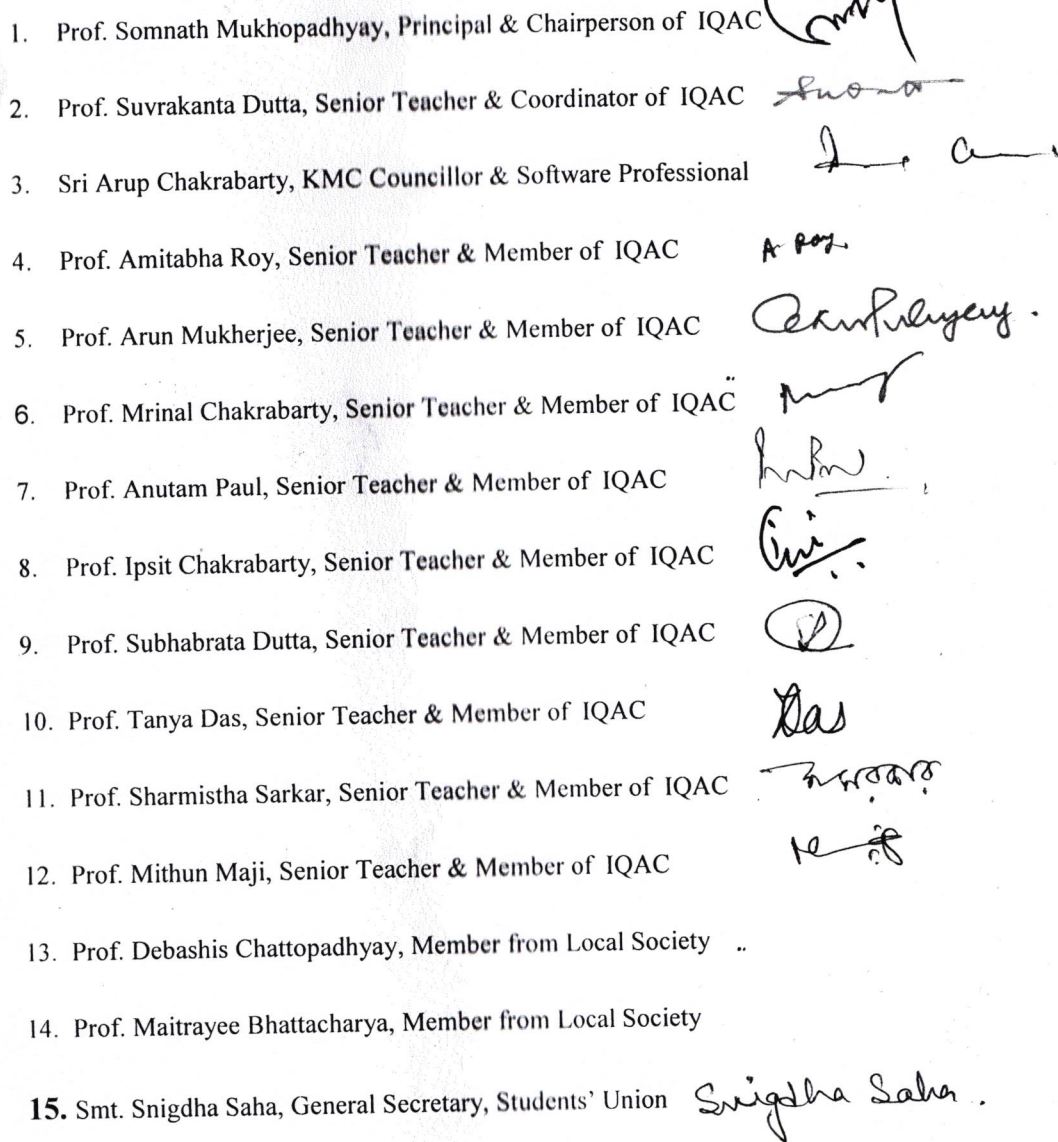 1. Prof. Somnath Mukhopadhyay, Principal & Chairperson of IQAC
2. Prof. Suvrakanta Dutta, Senior Teacher & Coordinator of IQAC
3. Sri Arup Chakrabarty, KMC Councillor & Software Professional
4. Prof. Amitabha Roy, Senior Teacher & Member of IQAC A Roy.
5. Prof. Arun Mukherjee, Senior Teacher & Member of IQAC
6. Prof. Mrinal Chakrabarty, Senior Teacher & Member of IQAC
7. Prof. Anutam Paul, Senior Teacher & Member of IQAC
8. Prof. Ipsit Chakrabarty, Senior Teacher & Member of IQAC
9. Prof. Subhabrata Dutta, Senior Teacher & Member of IQAC
10. Prof. Tanya Das, Senior Teacher & Member of IQAC Das
11. Prof. Sharmistha Sarkar, Senior Teacher & Member of IQAC
12. Prof. Mithun Maji, Senior Teacher & Member of IQAC
13. Prof. Debashis Chattopadhyay, Member from Local Society ..
14. Prof. Maitrayee Bhattacharya, Member from Local Society
15. Smt. Snigdha Saha, General Secretary, Students' Union Snigdha Saha.